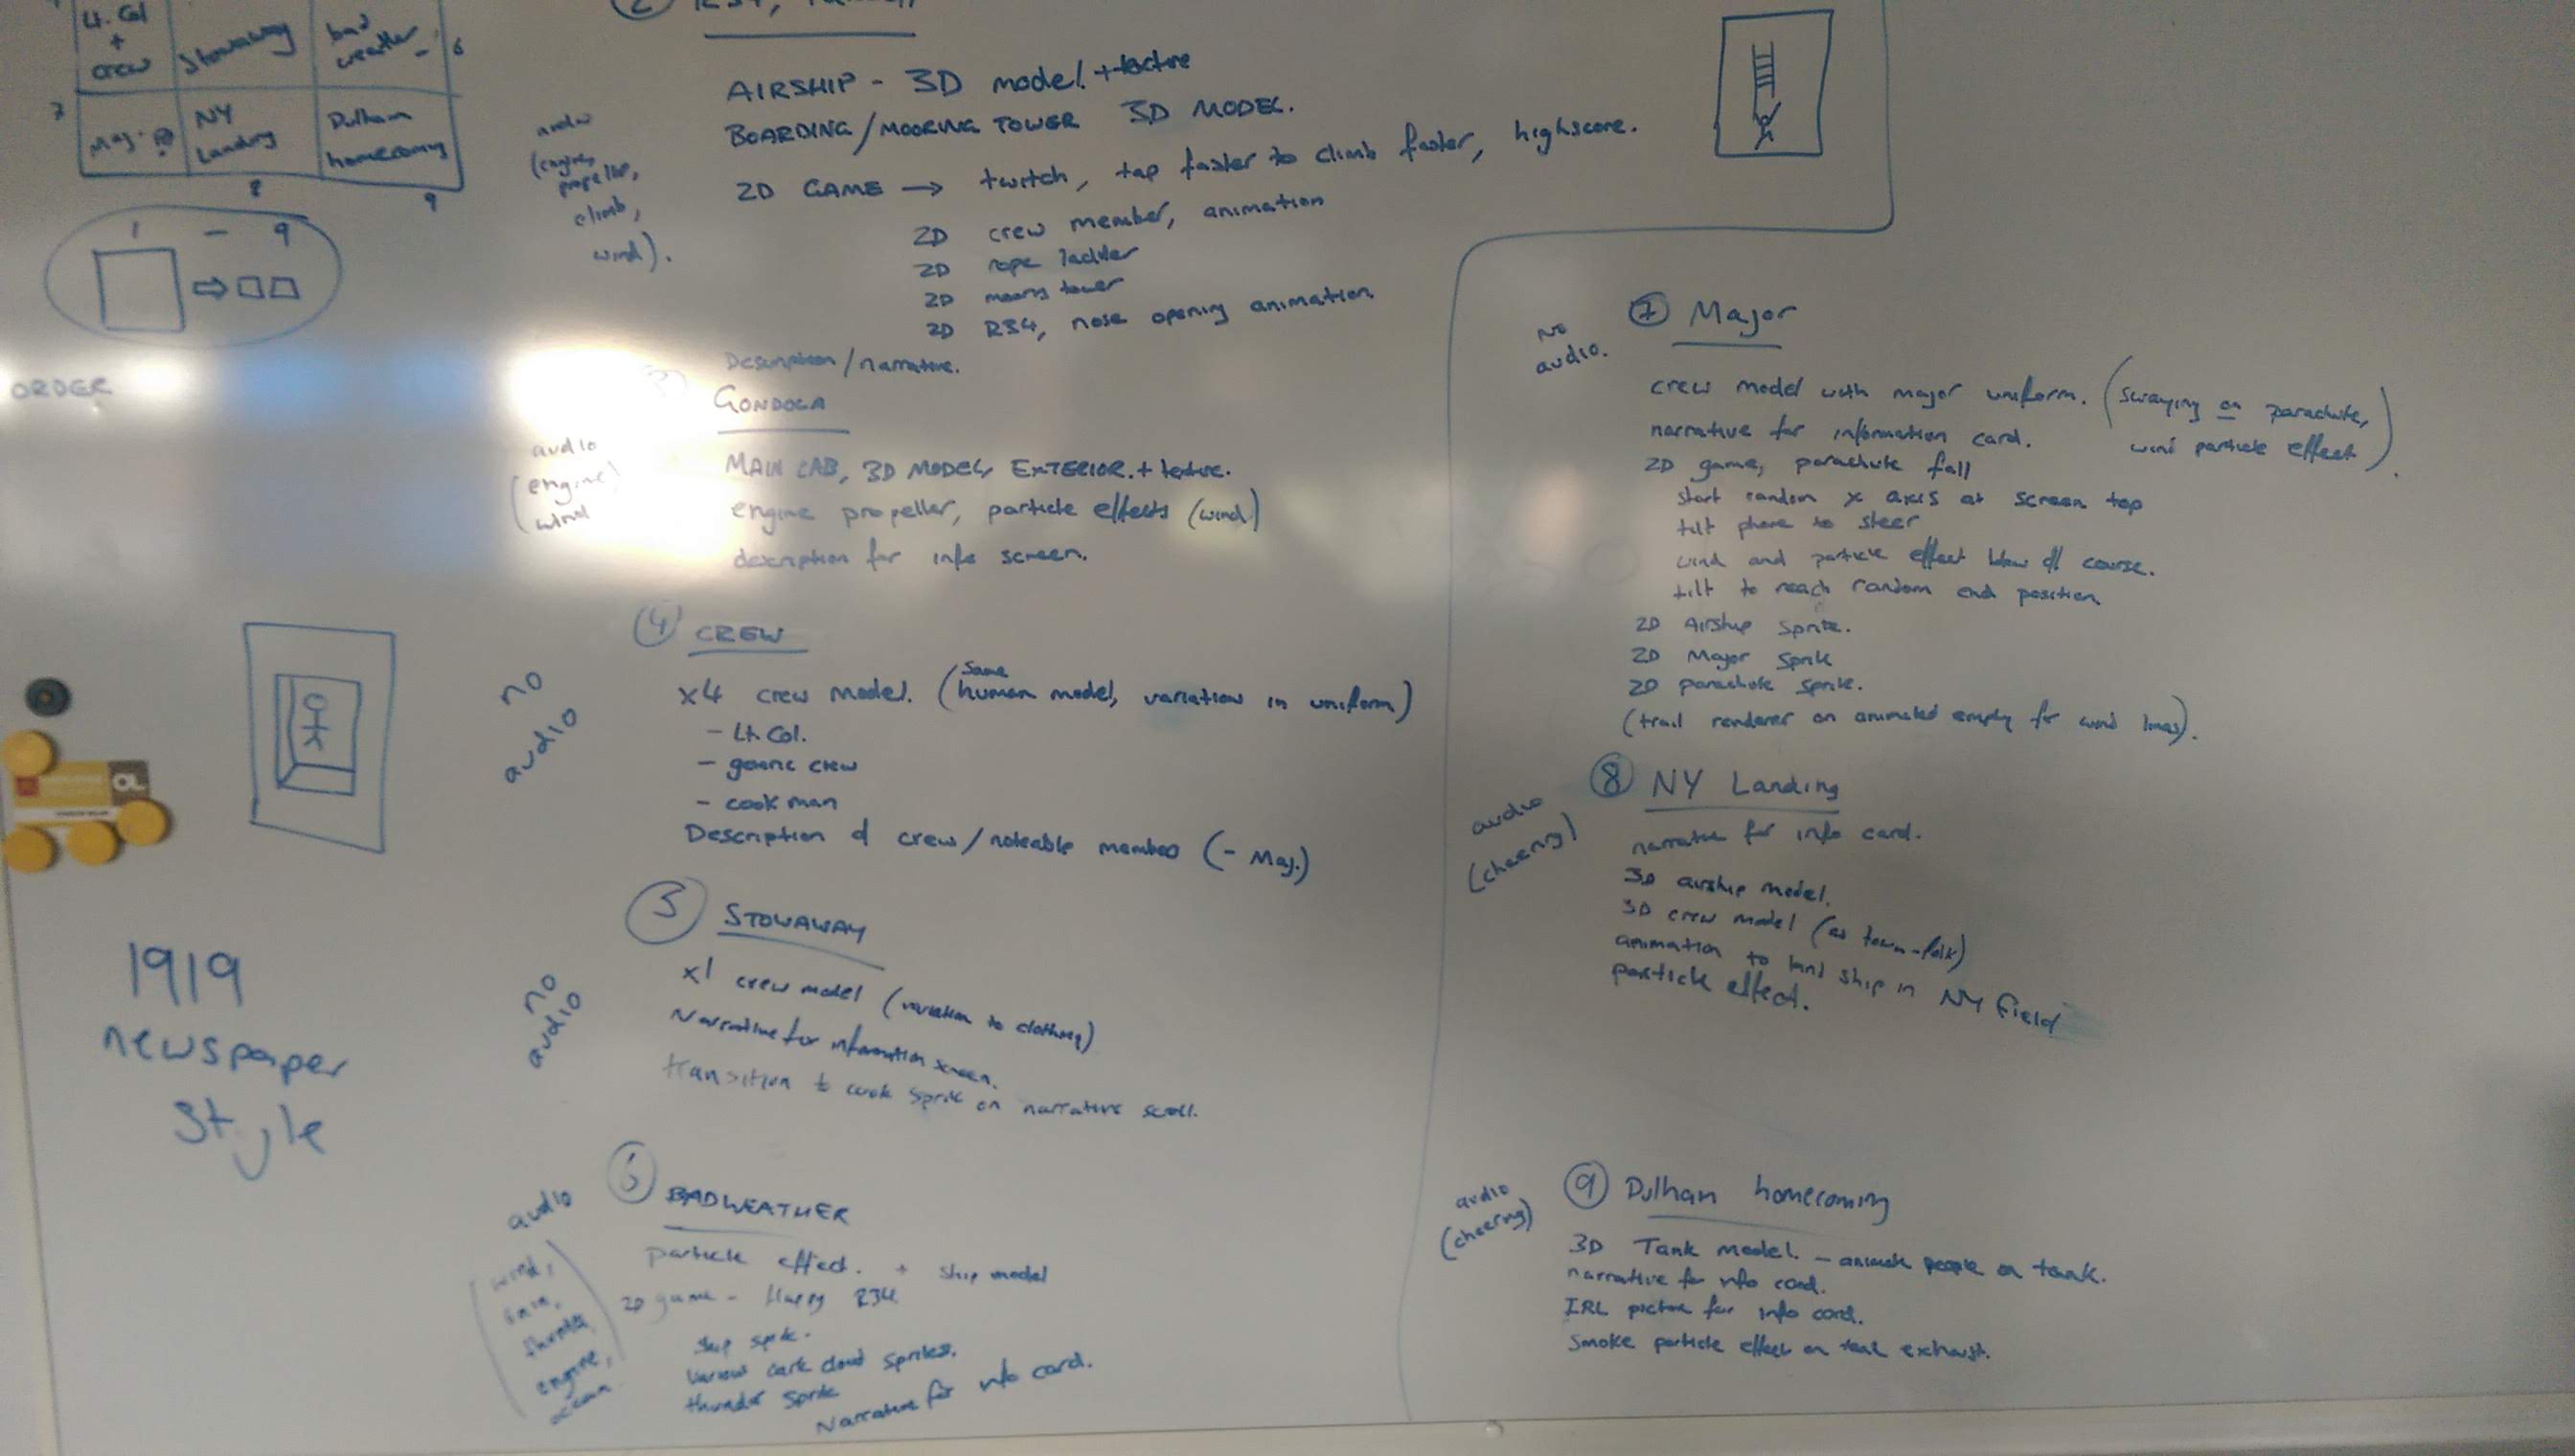 Lt. Col
+
crew
Stowaway
bad
weather
6
7
Maj.
NY
Landing
Pulham
homecoming
8
9
1 - 9
ORDER
1919
newspaper
style
R34,
AIRSHIP - 3D model + texture
BOARDING/MOORING TOWER 3D MODEL.
2D GAME → twitch, tap faster to climb faster, highscore.
2D crew member, animation
2D rope ladder
2D mooring tower
2D R34, nose opening animation.
Description/narrative.
audio
(engine,
propeller,
climb,
wind).
GONDOLA
MAIN CAB, 3D MODEL, EXTERIOR. + texture.
engine propeller, particle effects (wind)
description for info screen.
audio
(engine)
wind
4 CREW
x4 crew model. (same human model, variation in uniform)
- Lt. Col.
- generic crew
- cook man
Description of crew/noteable members (- Maj.)
no
audio
5 STOWAWAY
x1 crew model (variation to clothing)
Narrative for information screen.
transition to cook sprite on narrative scroll.
no
audio
6 BAD WEATHER
particle effect. + ship model
2D game - R34
ship sprite.
Various dark cloud sprites.
thunder sprite
Narrative for info card.
audio
(wind,
rain,
thunder,
engine,
ocean
7 Major
crew model with major uniform. (swaying on parachute,
wind particle effect)
narrative for information card.
2D game, parachute fall
start random x axis at screen top
tilt phone to steer
wind and particle effect blow off course.
tilt to reach random end position
2D Airship sprite.
2D Major sprite
2D parachute sprite.
(trail renderer on animated empty for wind lines).
No
audio.
8 NY Landing
narrative for info card.
3D airship model.
3D crew model (as town-folk)
animation to land ship in NY field
particle effect.
audio
(cheering)
9 Pulham homecoming
3D Tank model. - animate people on tank.
narrative for info card.
IRL picture for info card.
Smoke particle effect on tank exhaust.
audio
(cheering)